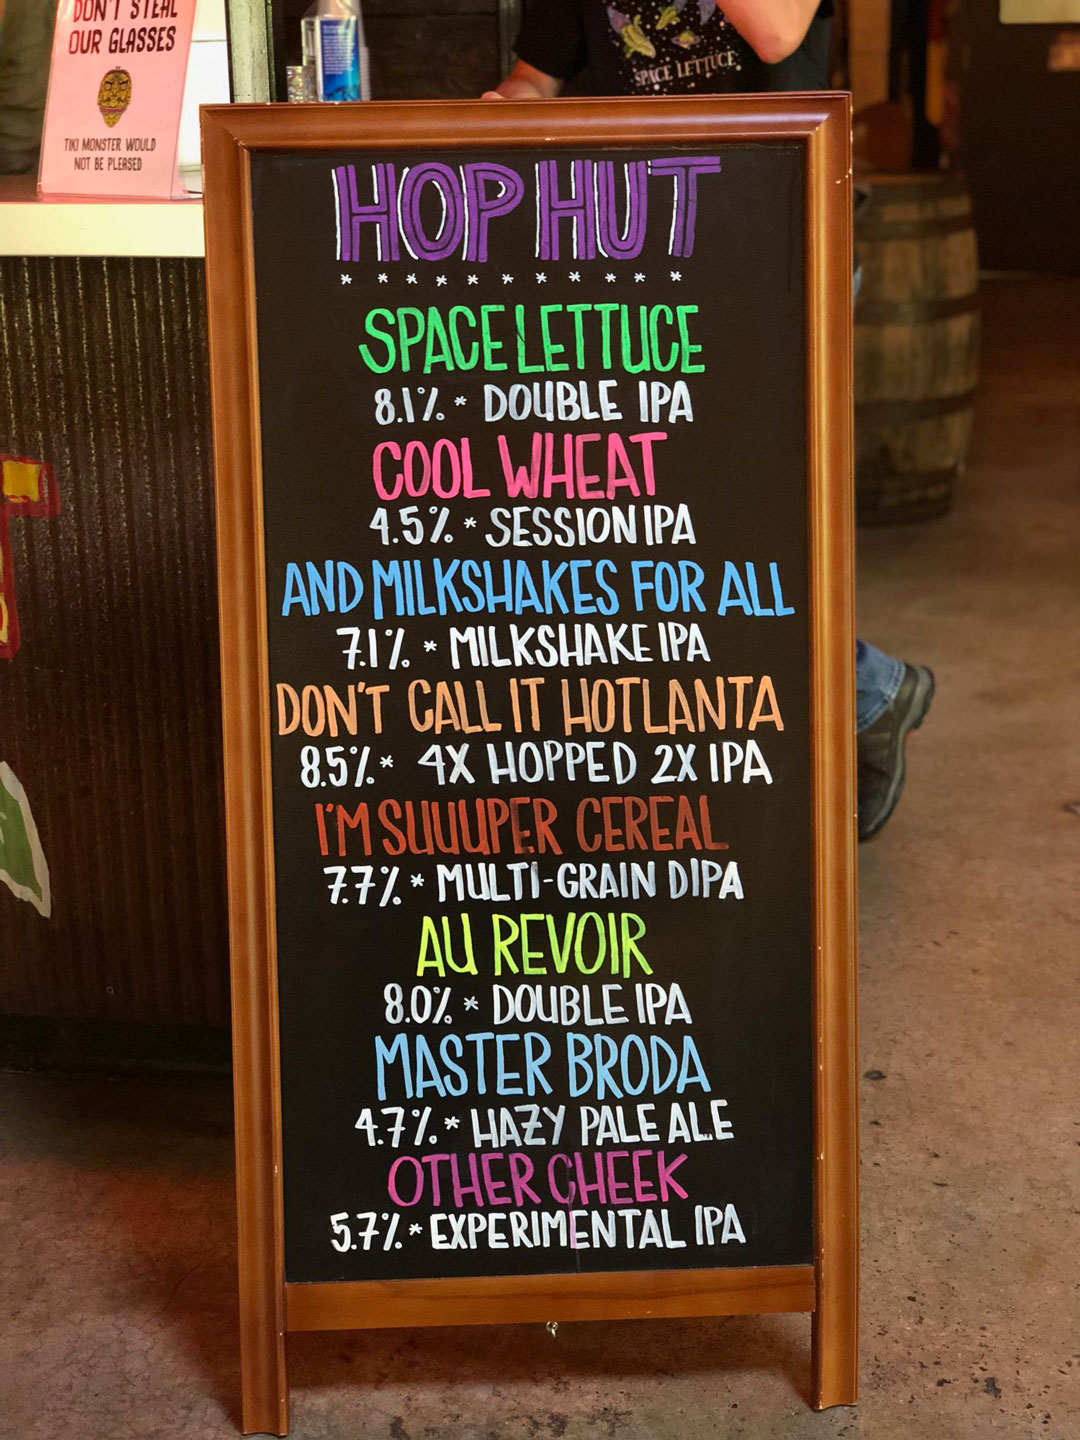 DON'T STEAL
OUR GLASSES
TIKI MONSTER WOULD
NOT BE PLEASED
SPACE LETTUCE
HOP HUT
* * * * * * * * * * *
SPACE LETTUCE
8.1% * DOUBLE IPA
COOL WHEAT
4.5% * SESSION IPA
AND MILKSHAKES FOR ALL
7.1% * MILKSHAKE IPA
DON'T CALL IT HOTLANTA
8.5% * 4X HOPPED 2X IPA
I'M SUUUPER CEREAL
7.7% * MULTI-GRAIN DIPA
AU REVOIR
8.0% * DOUBLE IPA
MASTER BRODA
4.7% * HAZY PALE ALE
OTHER CHEEK
5.7% * EXPERIMENTAL IPA